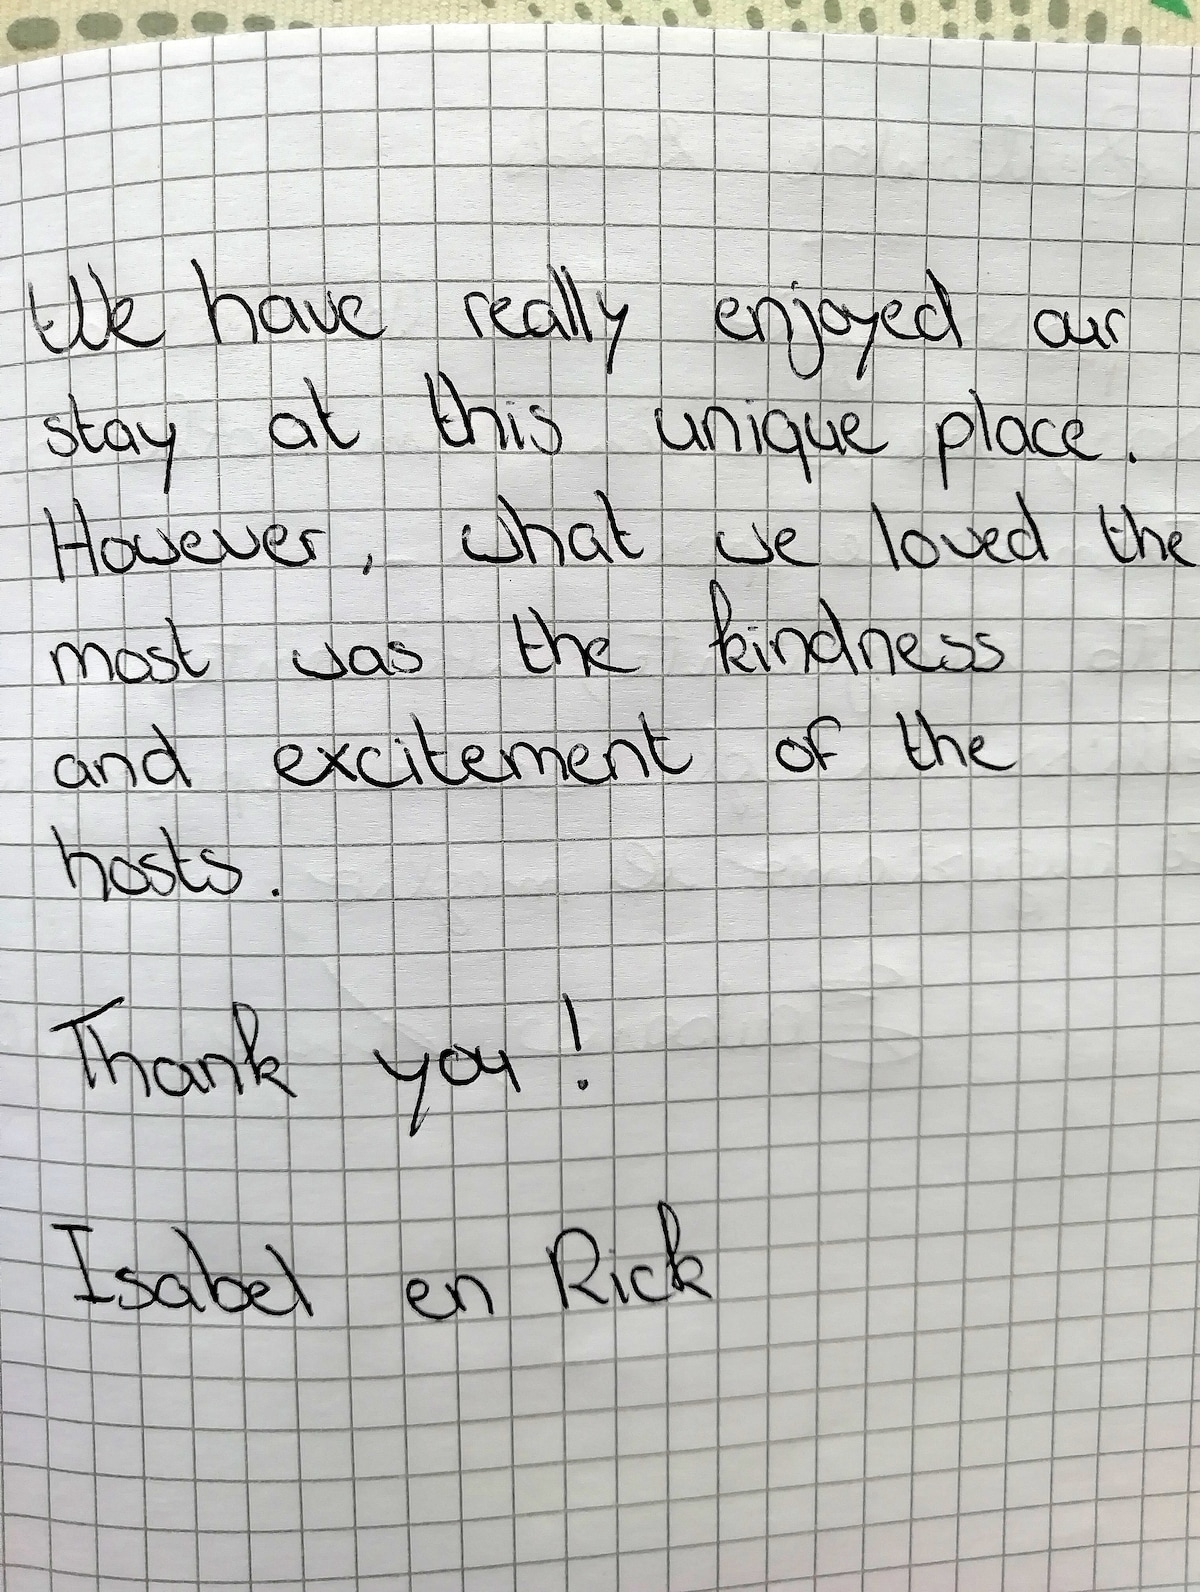 We have really enjoyed our
stay at this unique place.
However, what we loved the
most was the kindness
and excitement of the
hosts.
Thank you!
Isabel en Rick